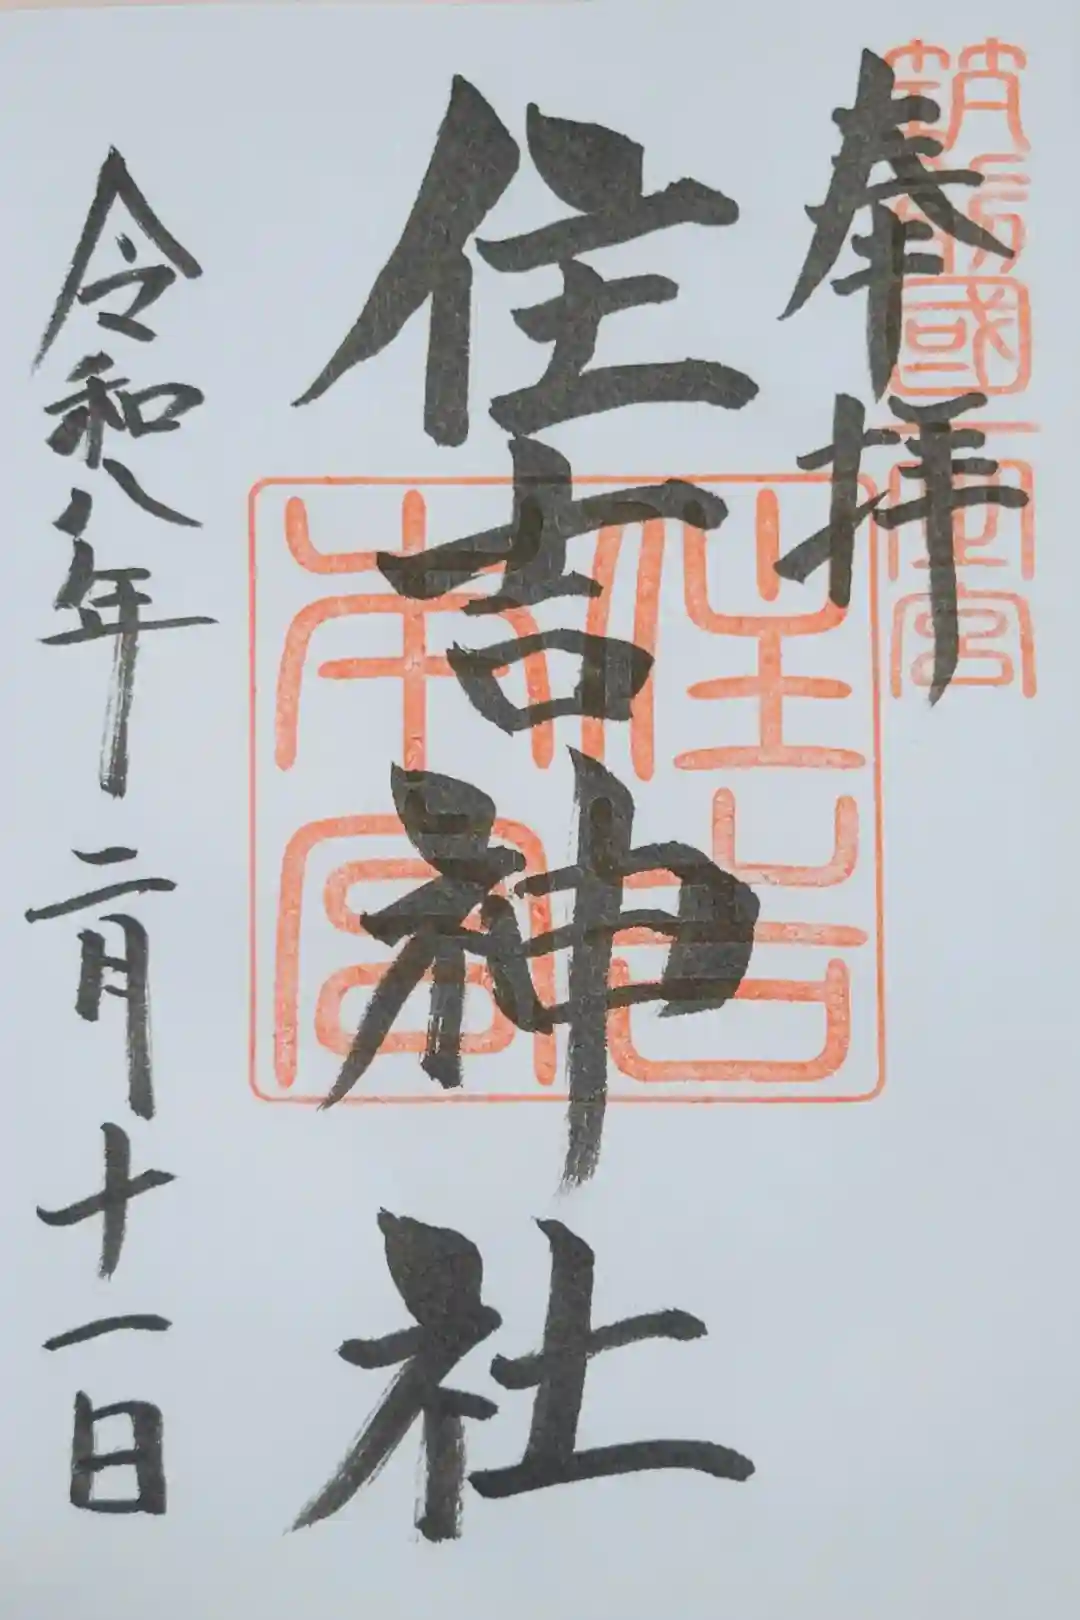 筑前國一宮
奉拝
住吉神社
住吉本宮
令和八年二月十一日